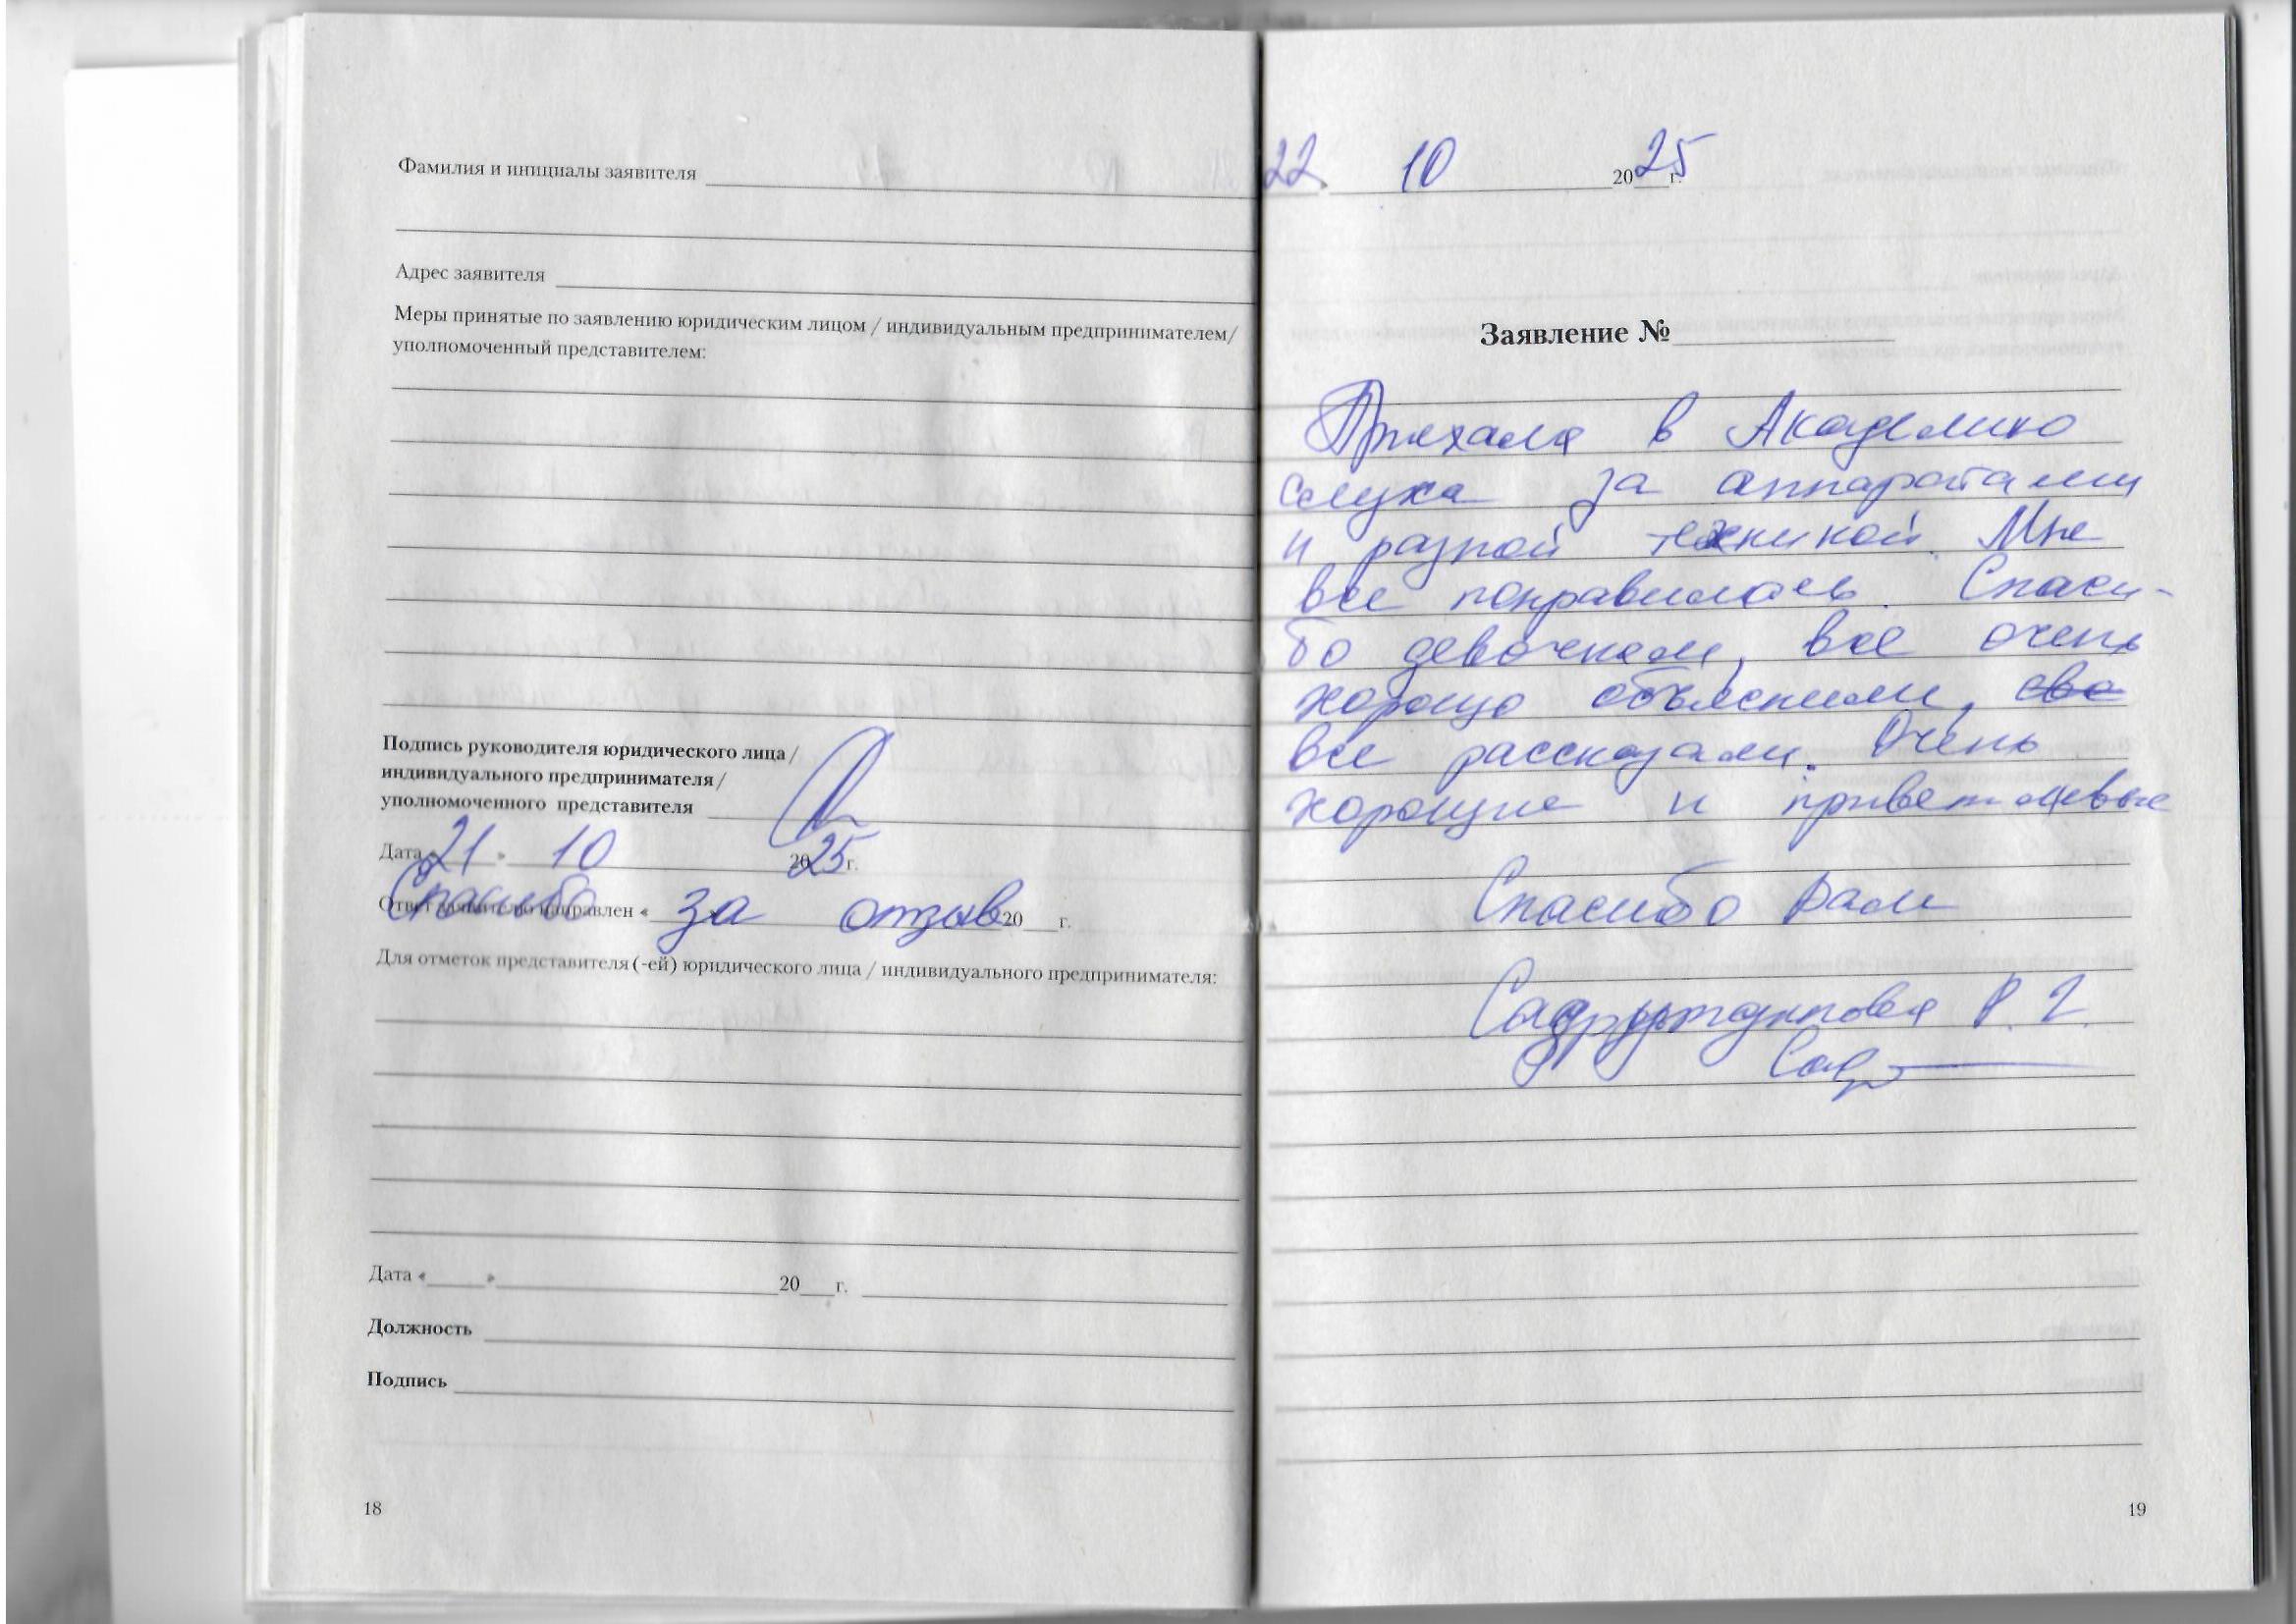 Фамилия и инициалы заявителя
Адрес заявителя
Меры принятые по заявлению юридическим лицом / индивидуальным предпринимателем/
уполномоченный представителем:
Подпись руководителя юридического лица /
индивидуального предпринимателя /
уполномоченного представителя
Дата « 21 » 10 2025 г.
Ответ заявителю направлен « 20 г.
Спасибо за отзыв
Для отметок представителя (-ей) юридического лица / индивидуального предпринимателя:
Дата « » 20 г.
Должность
Подпись
18
22. 10 2025 г.
Заявление №
Приехала в Академию
слуха за аппаратами
и разной техникой. Мне
все понравилось. Спаси-
бо девочкам, все очень
хорошо объяснили, сва
все рассказали. Очень
хорошие и приветливые
Спасибо Вам
Р. Г.
19